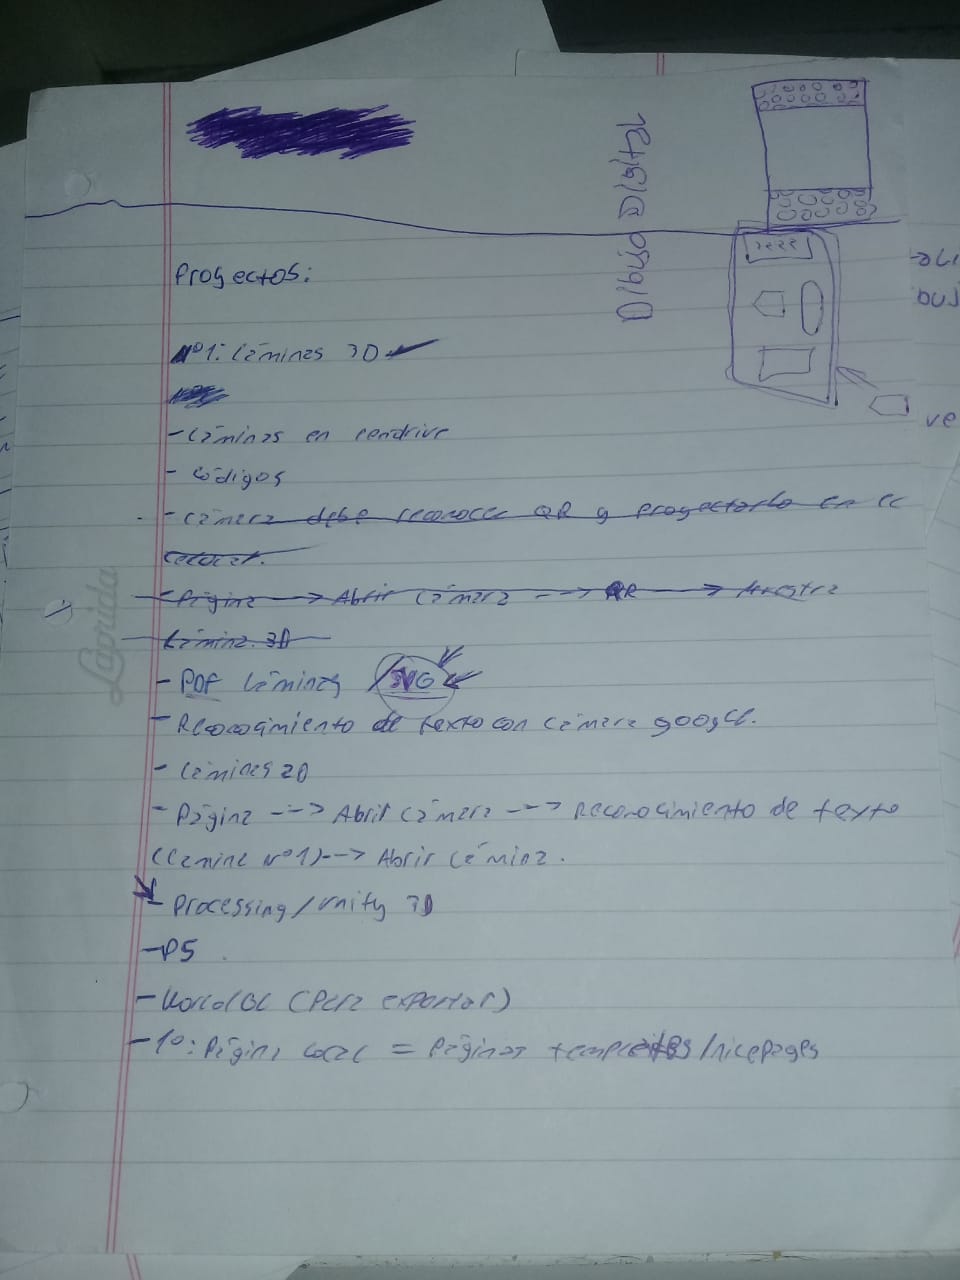 Dibujo Digital
Proyectos:
Nº1: Láminas 3D
- Láminas en pendrive
- Códigos
- Cámara debe reconocer QR y proyectarlo en el
celular.
- Página --> Abrir Cámara --> QR --> Muestra
Lámina 3D
- PDF Láminas / SVG
- Reconocimiento de texto con Cámara google.
- Láminas 2D
- Página --> Abrir Cámara --> Reconocimiento de texto
(Lámina Nº1) --> Abrir Lámina.
- Processing/Unity 3D
- P5
(Para exportar)
- 1º: Página local = Páginas templates/nicepages
Laprida
ve